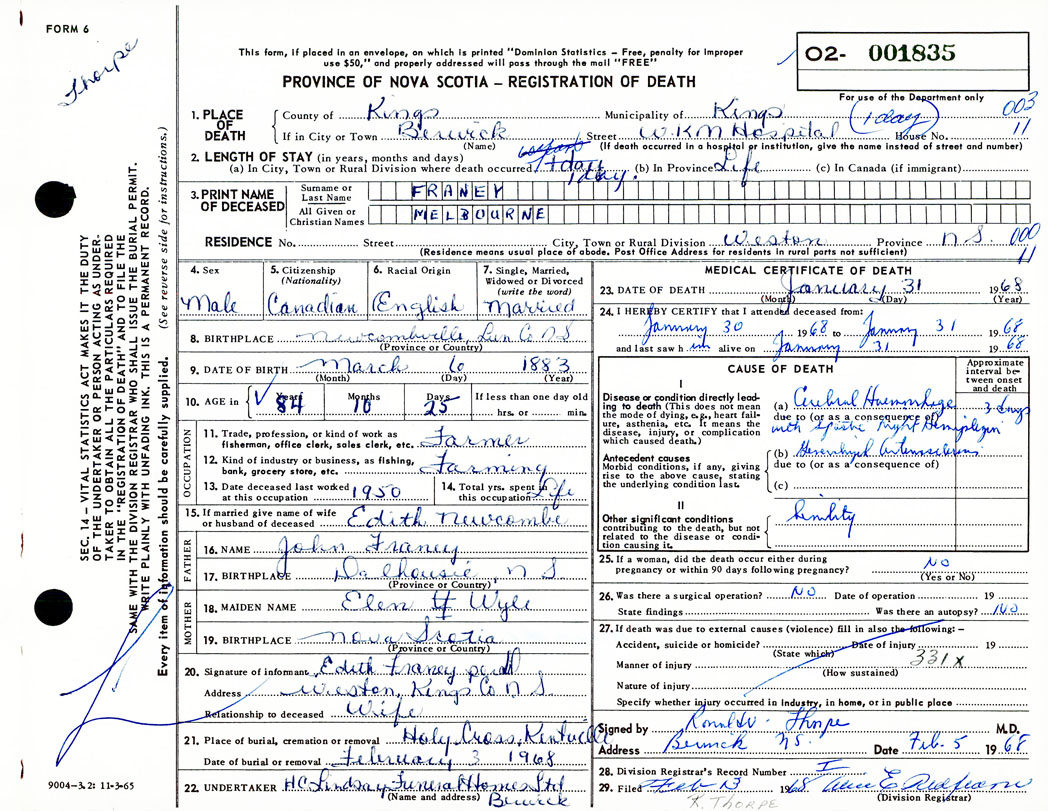 FORM 6
Thorpe
This form, if placed in an envelope, on which is printed "Dominion Statistics – Free, penalty for improper
use $50," and properly addressed will pass through the mail "FREE"
O2- 001835
PROVINCE OF NOVA SCOTIA – REGISTRATION OF DEATH
For use of the Department only
003
11
1. PLACE OF DEATH
County of Kings Municipality of Kings (1 day)
If in City or Town Berwick Street W.K.M Hospital House No.
(Name) (If death occurred in a hospital or institution, give the name instead of street and number)
2. LENGTH OF STAY (in years, months and days)
(a) In City, Town or Rural Division where death occurred 1 day (b) In Province Life (c) In Canada (if immigrant)
1 day.
3. PRINT NAME OF DECEASED
Surname or Last Name FRANEY
All Given or Christian Names MELBOURNE
RESIDENCE No. Street City, Town or Rural Division Weston Province N.S. 000
11
(Residence means usual place of abode. Post Office Address for residents in rural parts not sufficient)
4. Sex Male
5. Citizenship (Nationality) Canadian
6. Racial Origin English
7. Single, Married, Widowed or Divorced (write the word) Married
8. BIRTHPLACE Newcombville, Lun Co N S
(Province or Country)
9. DATE OF BIRTH March 6 1883
(Month) (Day) (Year)
10. AGE in Years 84 Months 10 Days 25 If less than one day old
hrs. or min.
OCCUPATION
11. Trade, profession, or kind of work as
fisherman, office clerk, sales clerk, etc. Farmer
12. Kind of industry or business, as fishing,
bank, grocery store, etc. Farming
13. Date deceased last worked
at this occupation 1950
14. Total yrs. spent in
this occupation Life
15. If married give name of wife
or husband of deceased Edith Newcombe
FATHER
16. NAME John Franey
17. BIRTHPLACE Dalhousie N S
(Province or Country)
MOTHER
18. MAIDEN NAME Elen H Wyle
19. BIRTHPLACE Nova Scotia
(Province or Country)
20. Signature of informant Edith Franey
Address Weston, Kings Co N S
Relationship to deceased Wife
21. Place of burial, cremation or removal Holy Cross, Kentville
Date of burial or removal February 3 1968
22. UNDERTAKER H.C. Lindsay Funeral Homes Ltd
(Name and address) Berwick
MEDICAL CERTIFICATE OF DEATH
23. DATE OF DEATH January 31 1968
(Month) (Day) (Year)
24. I HEREBY CERTIFY that I attended deceased from:
January 30 1968 to January 31 1968
and last saw him alive on January 31 1968
CAUSE OF DEATH
Approximate
interval be-
tween onset
and death
I
Disease or condition directly lead-
ing to death (This does not
mean the mode of dying, e.g., heart fail-
ure, asthenia, etc. It means the
disease, injury, or complication
which caused death.)
(a) Cerebral Haemorrhage 3 days
due to (or as a consequence of)
with Spastic Right Hemiplegia
Antecedent causes
Morbid conditions, if any, giving
rise to the above cause, stating
the underlying condition last.
(b) Generalized Arteriosclerosis
due to (or as a consequence of)
(c)
II
Other significant conditions
contributing to the death, but not
related to the disease or condi-
tion causing it.
Senility
25. If a woman, did the death occur either during
pregnancy or within 90 days following pregnancy? NO
(Yes or No)
26. Was there a surgical operation? NO Date of operation 19
State findings Was there an autopsy? NO
27. If death was due to external causes (violence) fill in also the following: –
Accident, suicide or homicide? Date of injury 19
(State which) 331X
Manner of injury
(How sustained)
Nature of injury
Specify whether injury occurred in industry, in home, or in public place
Signed by Ronald W. Thorpe M.D.
Address Berwick N.S. Date Feb. 5 1968
28. Division Registrar's Record Number I
29. Filed Feb 13 1968
(Division Registrar)
R. THORPE
SEC. 14 – VITAL STATISTICS ACT MAKES IT THE DUTY
OF THE UNDERTAKER OR PERSON ACTING AS UNDER-
TAKER TO OBTAIN ALL THE PARTICULARS REQUIRED
IN THE "REGISTRATION OF DEATH" AND TO FILE THE
SAME WITH THE DIVISION REGISTRAR WHO SHALL ISSUE THE BURIAL PERMIT.
WRITE PLAINLY WITH UNFADING INK. THIS IS A PERMANENT RECORD.
Every item of information should be carefully supplied. (See reverse side for instructions.)
9004–3.2: 11-3-65